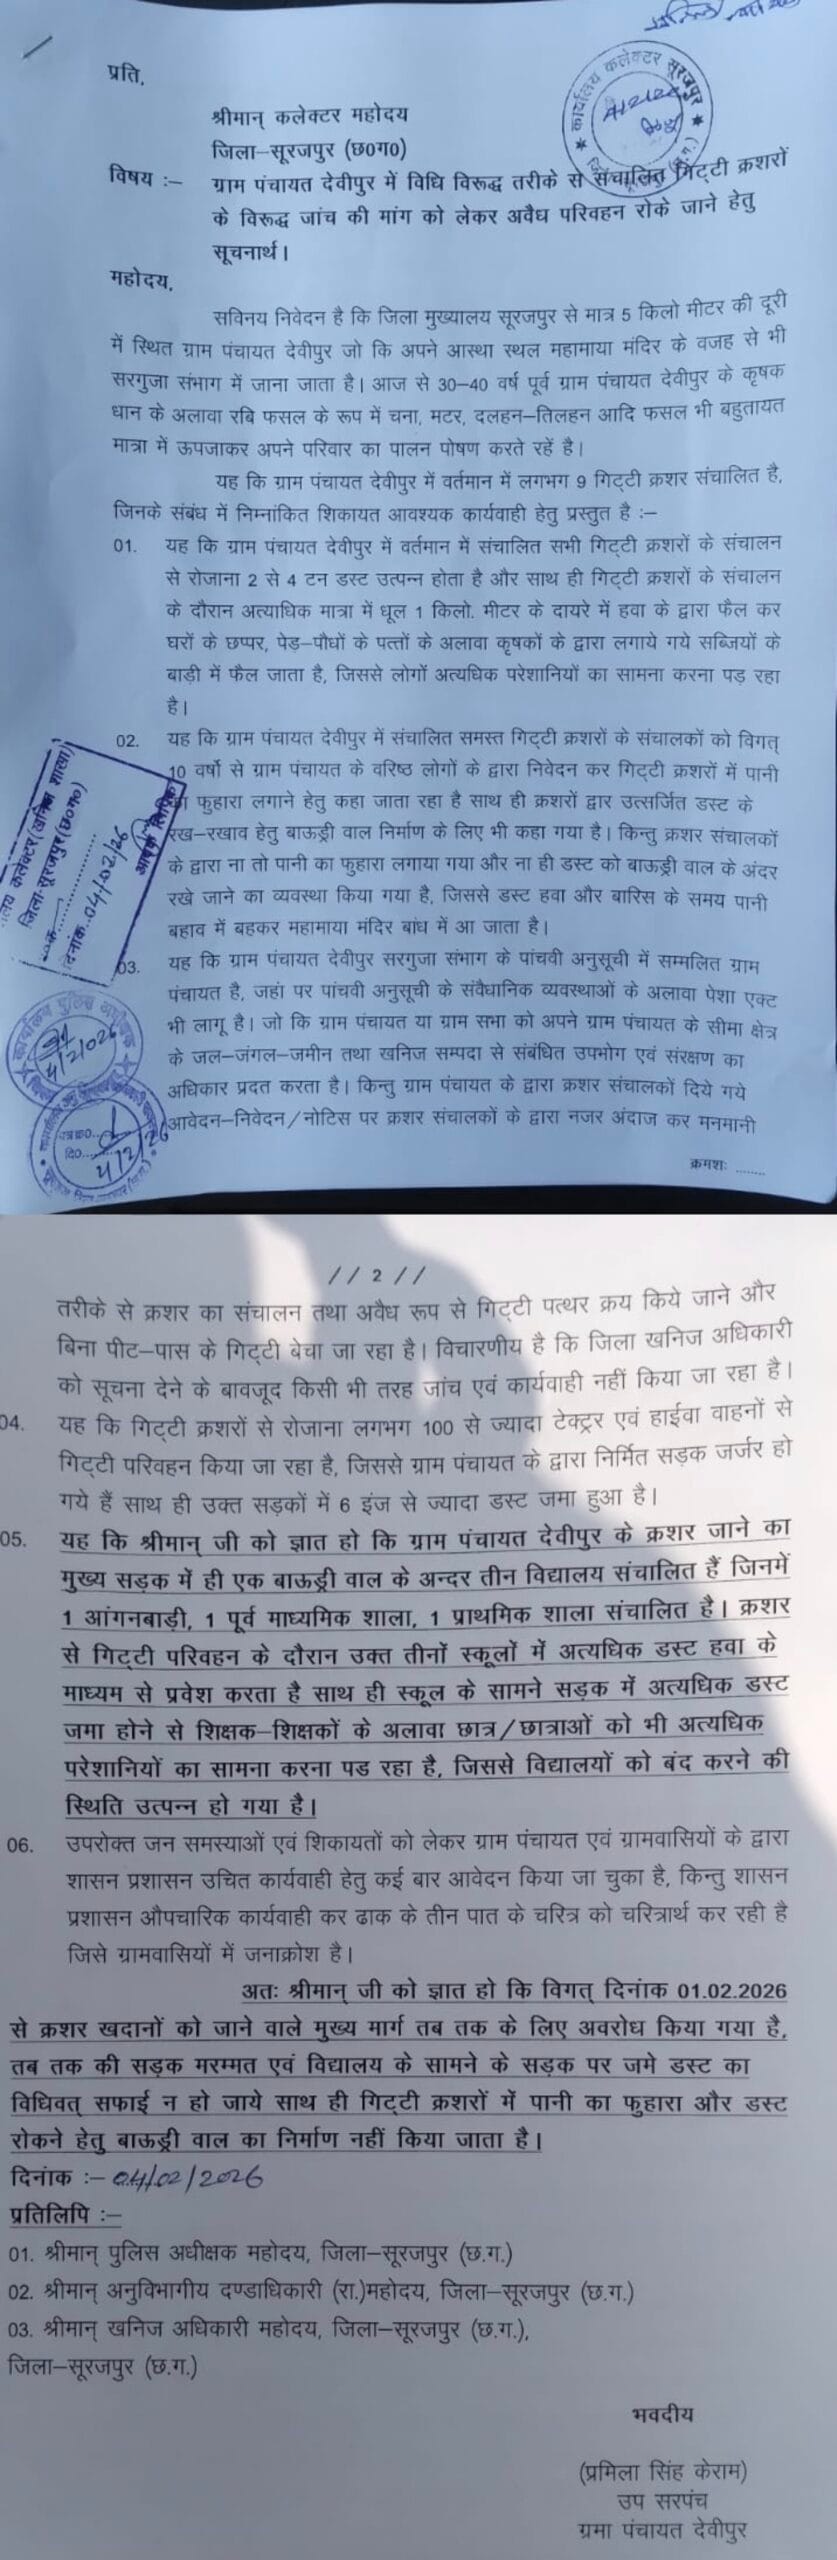 प्रति,
कार्यालय कलेक्टर सूरजपुर
श्रीमान् कलेक्टर महोदय
जिला–सूरजपुर (छ0ग0)
विषय :– ग्राम पंचायत देवीपुर में विधि विरूद्ध तरीके से संचालित गिट्टी क्रशरों
के विरूद्ध जांच की मांग को लेकर अवैध परिवहन रोके जाने हेतु
सूचनार्थ।
महोदय,
सविनय निवेदन है कि जिला मुख्यालय सूरजपुर से मात्र 5 किलो मीटर की दूरी
में स्थित ग्राम पंचायत देवीपुर जो कि अपने आस्था स्थल महामाया मंदिर के वजह से भी
सरगुजा संभाग में जाना जाता है। आज से 30–40 वर्ष पूर्व ग्राम पंचायत देवीपुर के कृषक
धान के अलावा रबि फसल के रूप में चना, मटर, दलहन–तिलहन आदि फसल भी बहुतायत
मात्रा में ऊपजाकर अपने परिवार का पालन पोषण करते रहें है।
यह कि ग्राम पंचायत देवीपुर में वर्तमान में लगभग 9 गिट्टी क्रशर संचालित है,
जिनके संबंध में निम्नांकित शिकायत आवश्यक कार्यवाही हेतु प्रस्तुत है :–
01. यह कि ग्राम पंचायत देवीपुर में वर्तमान में संचालित सभी गिट्टी क्रशरों के संचालन
से रोजाना 2 से 4 टन डस्ट उत्पन्न होता है और साथ ही गिट्टी क्रशरों के संचालन
के दौरान अत्याधिक मात्रा में धूल 1 किलो. मीटर के दायरे में हवा के द्वारा फैल कर
घरों के छप्पर, पेड़–पौधों के पत्तों के अलावा कृषकों के द्वारा लगाये गये सब्जियों के
बाड़ी में फैल जाता है, जिससे लोगों अत्यधिक परेशानियों का सामना करना पड़ रहा
है।
02. यह कि ग्राम पंचायत देवीपुर में संचालित समस्त गिट्टी क्रशरों के संचालकों को विगत्
10 वर्षो से ग्राम पंचायत के वरिष्ठ लोगों के द्वारा निवेदन कर गिट्टी क्रशरों में पानी
का फुहारा लगाने हेतु कहा जाता रहा है साथ ही क्रशरों द्वार उत्सर्जित डस्ट के
रख–रखाव हेतु बाऊड्री वाल निर्माण के लिए भी कहा गया है। किन्तु क्रशर संचालकों
के द्वारा ना तो पानी का फुहारा लगाया गया और ना ही डस्ट को बाऊड्री वाल के अंदर
रखे जाने का व्यवस्था किया गया है, जिससे डस्ट हवा और बारिस के समय पानी
बहाव में बहकर महामाया मंदिर बांध में आ जाता है।
कलेक्टर (खनिज शाखा)
जिला–सूरजपुर (छ0ग0)
दिनांक..04/02/26
आवक लिपिक
03. यह कि ग्राम पंचायत देवीपुर सरगुजा संभाग के पांचवी अनुसूची में सम्मलित ग्राम
पंचायत है, जहां पर पांचवी अनुसूची के संवैधानिक व्यवस्थाओं के अलावा पेशा एक्ट
भी लागू है। जो कि ग्राम पंचायत या ग्राम सभा को अपने ग्राम पंचायत के सीमा क्षेत्र
के जल–जंगल–जमीन तथा खनिज सम्पदा से संबंधित उपभोग एवं संरक्षण का
अधिकार प्रदत करता है। किन्तु ग्राम पंचायत के द्वारा क्रशर संचालकों दिये गये
आवेदन–निवेदन/नोटिस पर क्रशर संचालकों के द्वारा नजर अंदाज कर मनमानी
कार्यालय पुलिस अधीक्षक
4/2/026
4/2/26
क्रमशः ........
// 2 //
तरीके से क्रशर का संचालन तथा अवैध रूप से गिट्टी पत्थर क्रय किये जाने और
बिना पीट–पास के गिट्टी बेचा जा रहा है। विचारणीय है कि जिला खनिज अधिकारी
को सूचना देने के बावजूद किसी भी तरह जांच एवं कार्यवाही नहीं किया जा रहा है।
04. यह कि गिट्टी क्रशरों से रोजाना लगभग 100 से ज्यादा टेक्ट्रर एवं हाईवा वाहनों से
गिट्टी परिवहन किया जा रहा है, जिससे ग्राम पंचायत के द्वारा निर्मित सड़क जर्जर हो
गये हैं साथ ही उक्त सड़कों में 6 इंज से ज्यादा डस्ट जमा हुआ है।
05. यह कि श्रीमान् जी को ज्ञात हो कि ग्राम पंचायत देवीपुर के क्रशर जाने का
मुख्य सड़क में ही एक बाऊड्री वाल के अन्दर तीन विद्यालय संचालित हैं जिनमें
1 आंगनबाड़ी, 1 पूर्व माध्यमिक शाला, 1 प्राथमिक शाला संचालित है। क्रशर
से गिट्टी परिवहन के दौरान उक्त तीनों स्कूलों में अत्यधिक डस्ट हवा के
माध्यम से प्रवेश करता है साथ ही स्कूल के सामने सड़क में अत्यधिक डस्ट
जमा होने से शिक्षक–शिक्षकों के अलावा छात्र/छात्राओं को भी अत्यधिक
परेशानियों का सामना करना पड रहा है, जिससे विद्यालयों को बंद करने की
स्थिति उत्पन्न हो गया है।
06. उपरोक्त जन समस्याओं एवं शिकायतों को लेकर ग्राम पंचायत एवं ग्रामवासियों के द्वारा
शासन प्रशासन उचित कार्यवाही हेतु कई बार आवेदन किया जा चुका है, किन्तु शासन
प्रशासन औपचारिक कार्यवाही कर ढाक के तीन पात के चरित्र को चरित्रार्थ कर रही है
जिसे ग्रामवासियों में जनाक्रोश है।
अतः श्रीमान् जी को ज्ञात हो कि विगत् दिनांक 01.02.2026
से क्रशर खदानों को जाने वाले मुख्य मार्ग तब तक के लिए अवरोध किया गया है,
तब तक की सड़क मरम्मत एवं विद्यालय के सामने के सड़क पर जमे डस्ट का
विधिवत् सफाई न हो जाये साथ ही गिट्टी क्रशरों में पानी का फुहारा और डस्ट
रोकने हेतु बाऊड्री वाल का निर्माण नहीं किया जाता है।
दिनांक :– 04/02/2026
प्रतिलिपि :–
01. श्रीमान् पुलिस अधीक्षक महोदय, जिला–सूरजपुर (छ.ग.)
02. श्रीमान् अनुविभागीय दण्डाधिकारी (रा.)महोदय, जिला–सूरजपुर (छ.ग.)
03. श्रीमान् खनिज अधिकारी महोदय, जिला–सूरजपुर (छ.ग.),
जिला–सूरजपुर (छ.ग.)
भवदीय
(प्रमिला सिंह केराम)
उप सरपंच
ग्रमा पंचायत देवीपुर